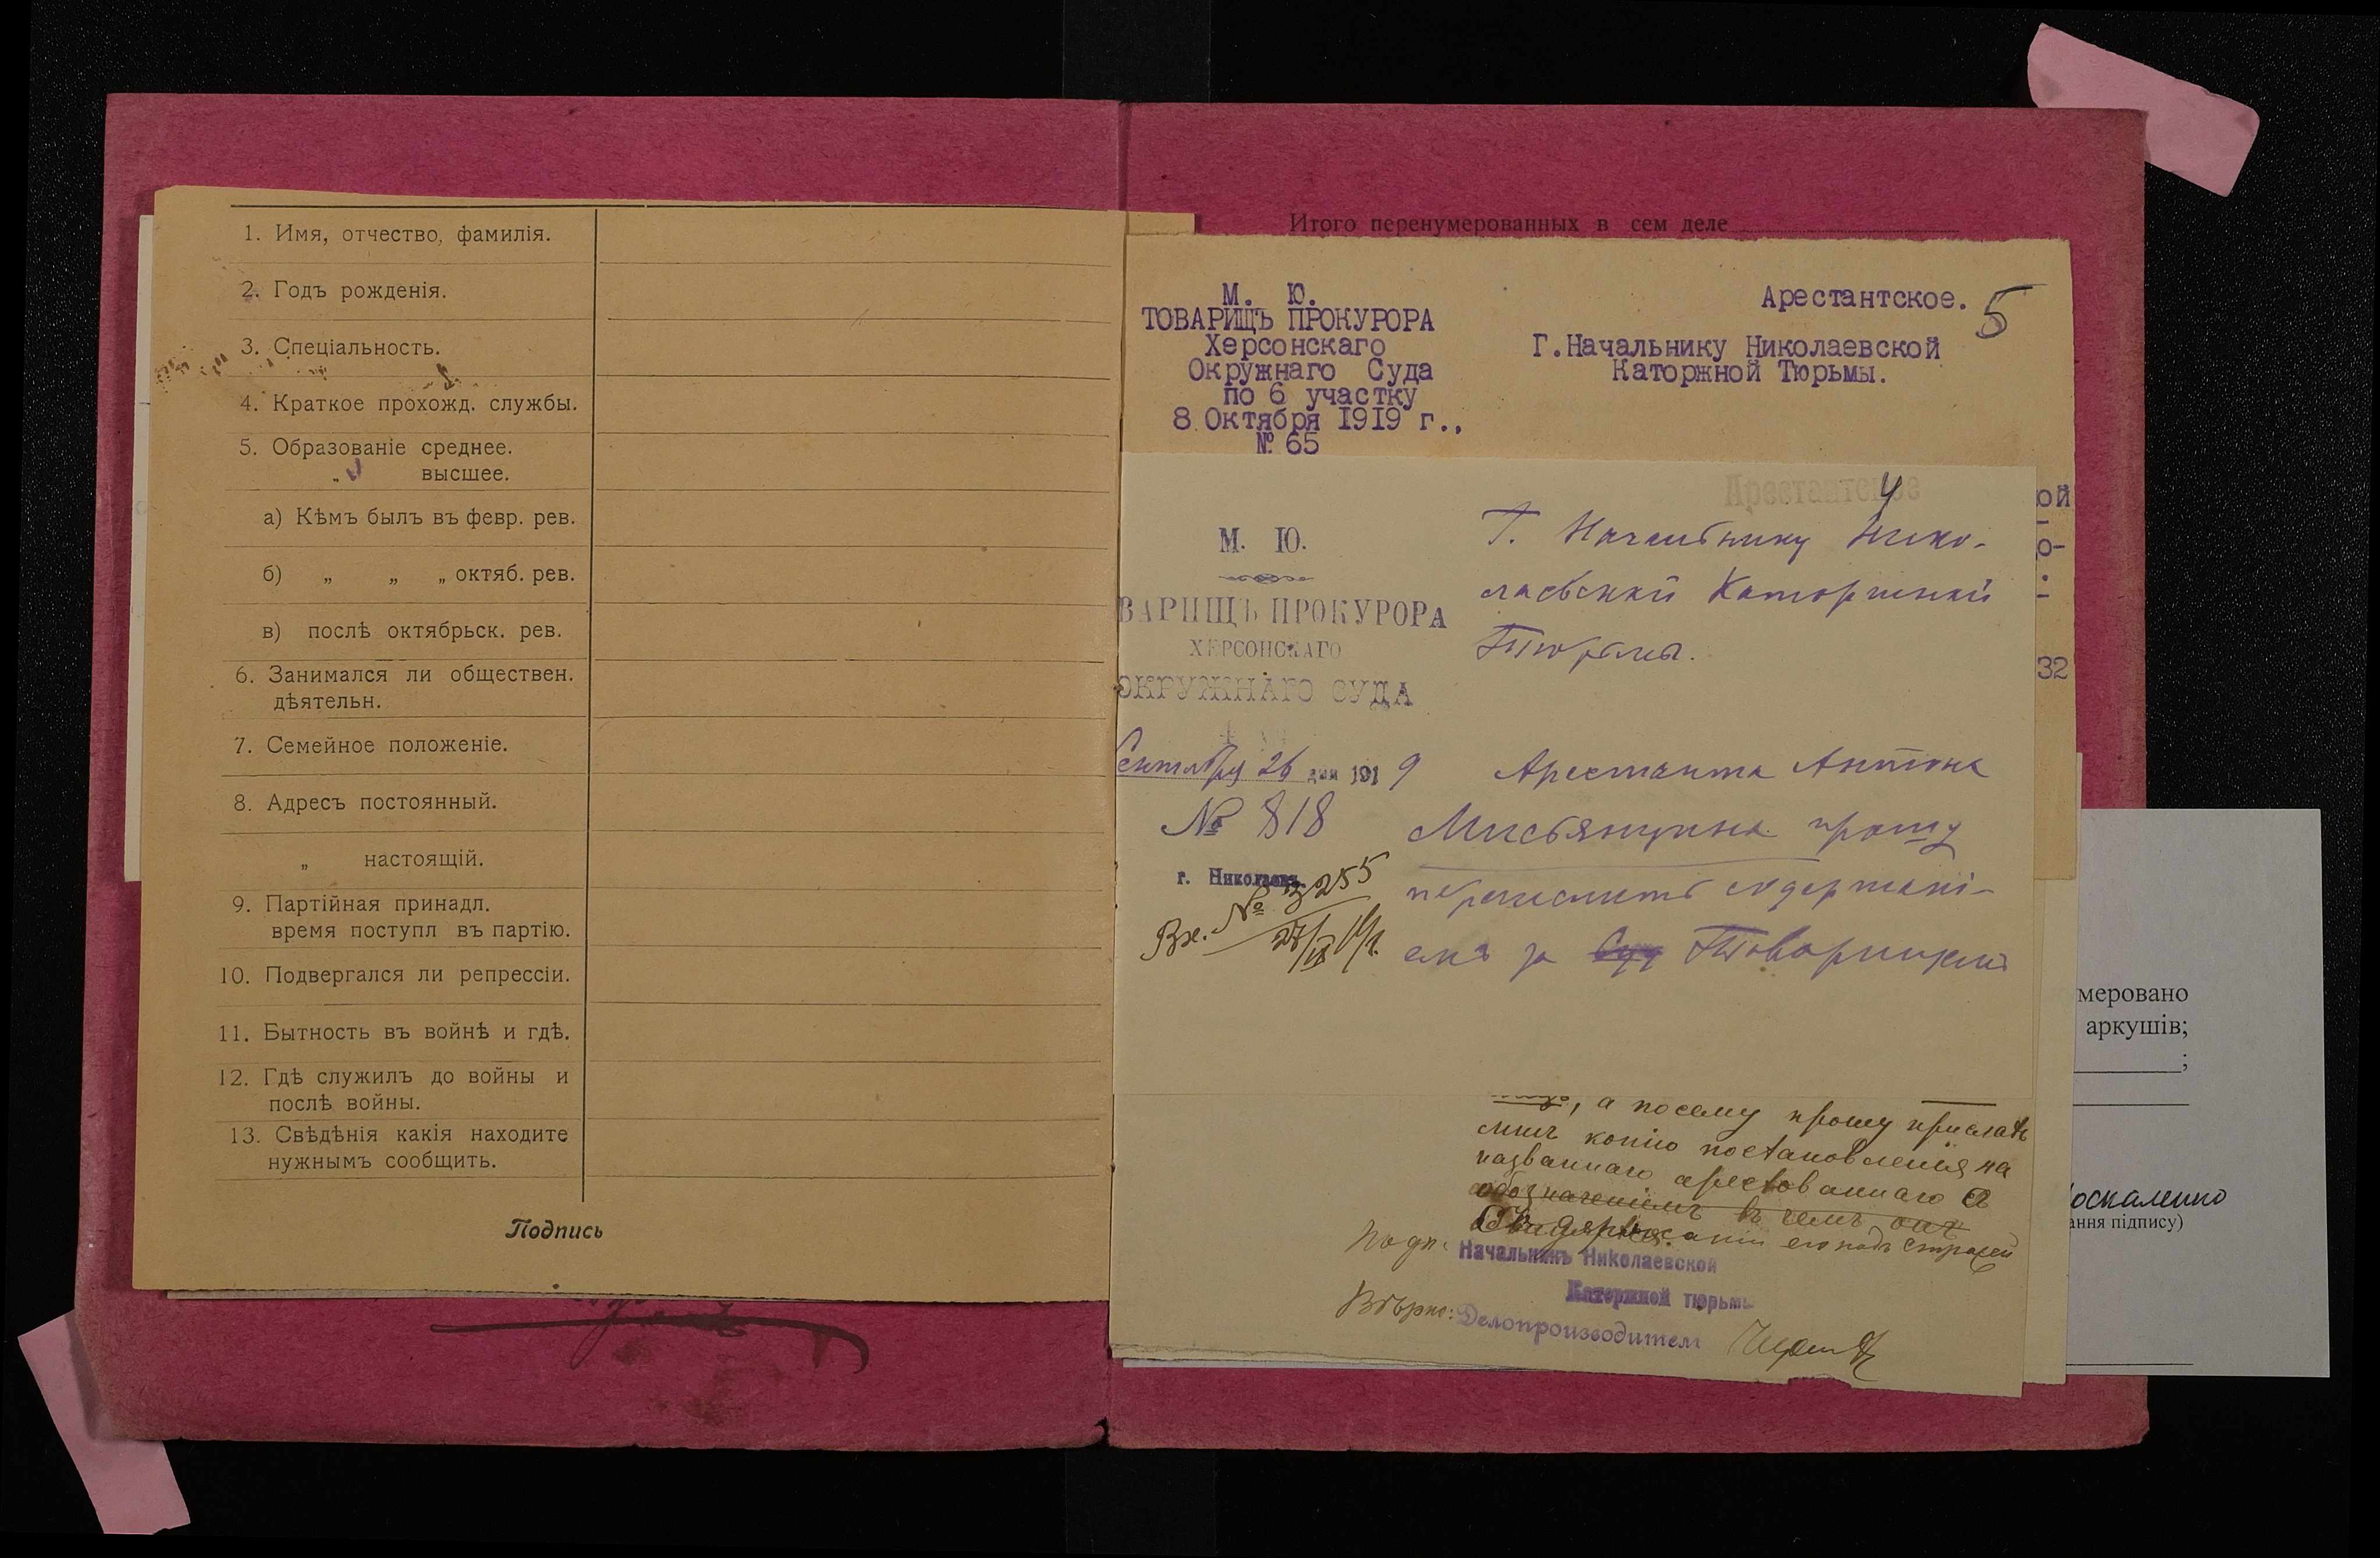 1. Имя, отчество, фамилія.
2. Годъ рожденія.
3. Спеціальность.
4. Краткое прохожд. службы.
5. Образованіе среднее.
„ высшее.
а) Кѣмъ былъ въ февр. рев.
б) „ „ „ октяб. рев.
в) послѣ октябрьск. рев.
6. Занимался ли обществен.
дѣятельн.
7. Семейное положеніе.
8. Адресъ постоянный.
„ настоящій.
9. Партійная принадл.
время поступл въ партію.
10. Подвергался ли репрессіи.
11. Бытность въ войнѣ и гдѣ.
12. Гдѣ служилъ до войны и
послѣ войны.
13. Свѣдѣнія какія находите
нужнымъ сообщить.
Подпись
Итого перенумерованных в сем деле
М. Ю.
ТОВАРИЩЪ ПРОКУРОРА
Херсонскаго
Окружнаго Суда
по 6 участку
8 Октября 1919 г.,
№ 65
Арестантское.
5
Г.Начальнику Николаевской
Каторжной Тюрьмы.
Арестантское
4
М. Ю.
ВАРИЩЪ ПРОКУРОРА
ХЕРСОНСКАГО
ОКРУЖНАГО СУДА
Сентября 26 дня 1919
№ 818
г. Николаевъ.
Вх. № 3255
27/IX 19 г.
Г. Начальнику Нико-
лаевской Каторжной
Тюрьмы.
Арестанта Антона
прошу
перечислить содержані-
емъ за Суд
ой
о-
32
, а посему прошу прислать
мнѣ копію постановленія на
названнаго арестованнаго
обозначеніемъ въ чемъ онъ
его подъ стражей
Подп.
Начальникъ Николаевской
Каторжной тюрьмы
Вѣрно: Делопроизводитель
меровано
аркушів;
;
оскаленко
ання підпису)